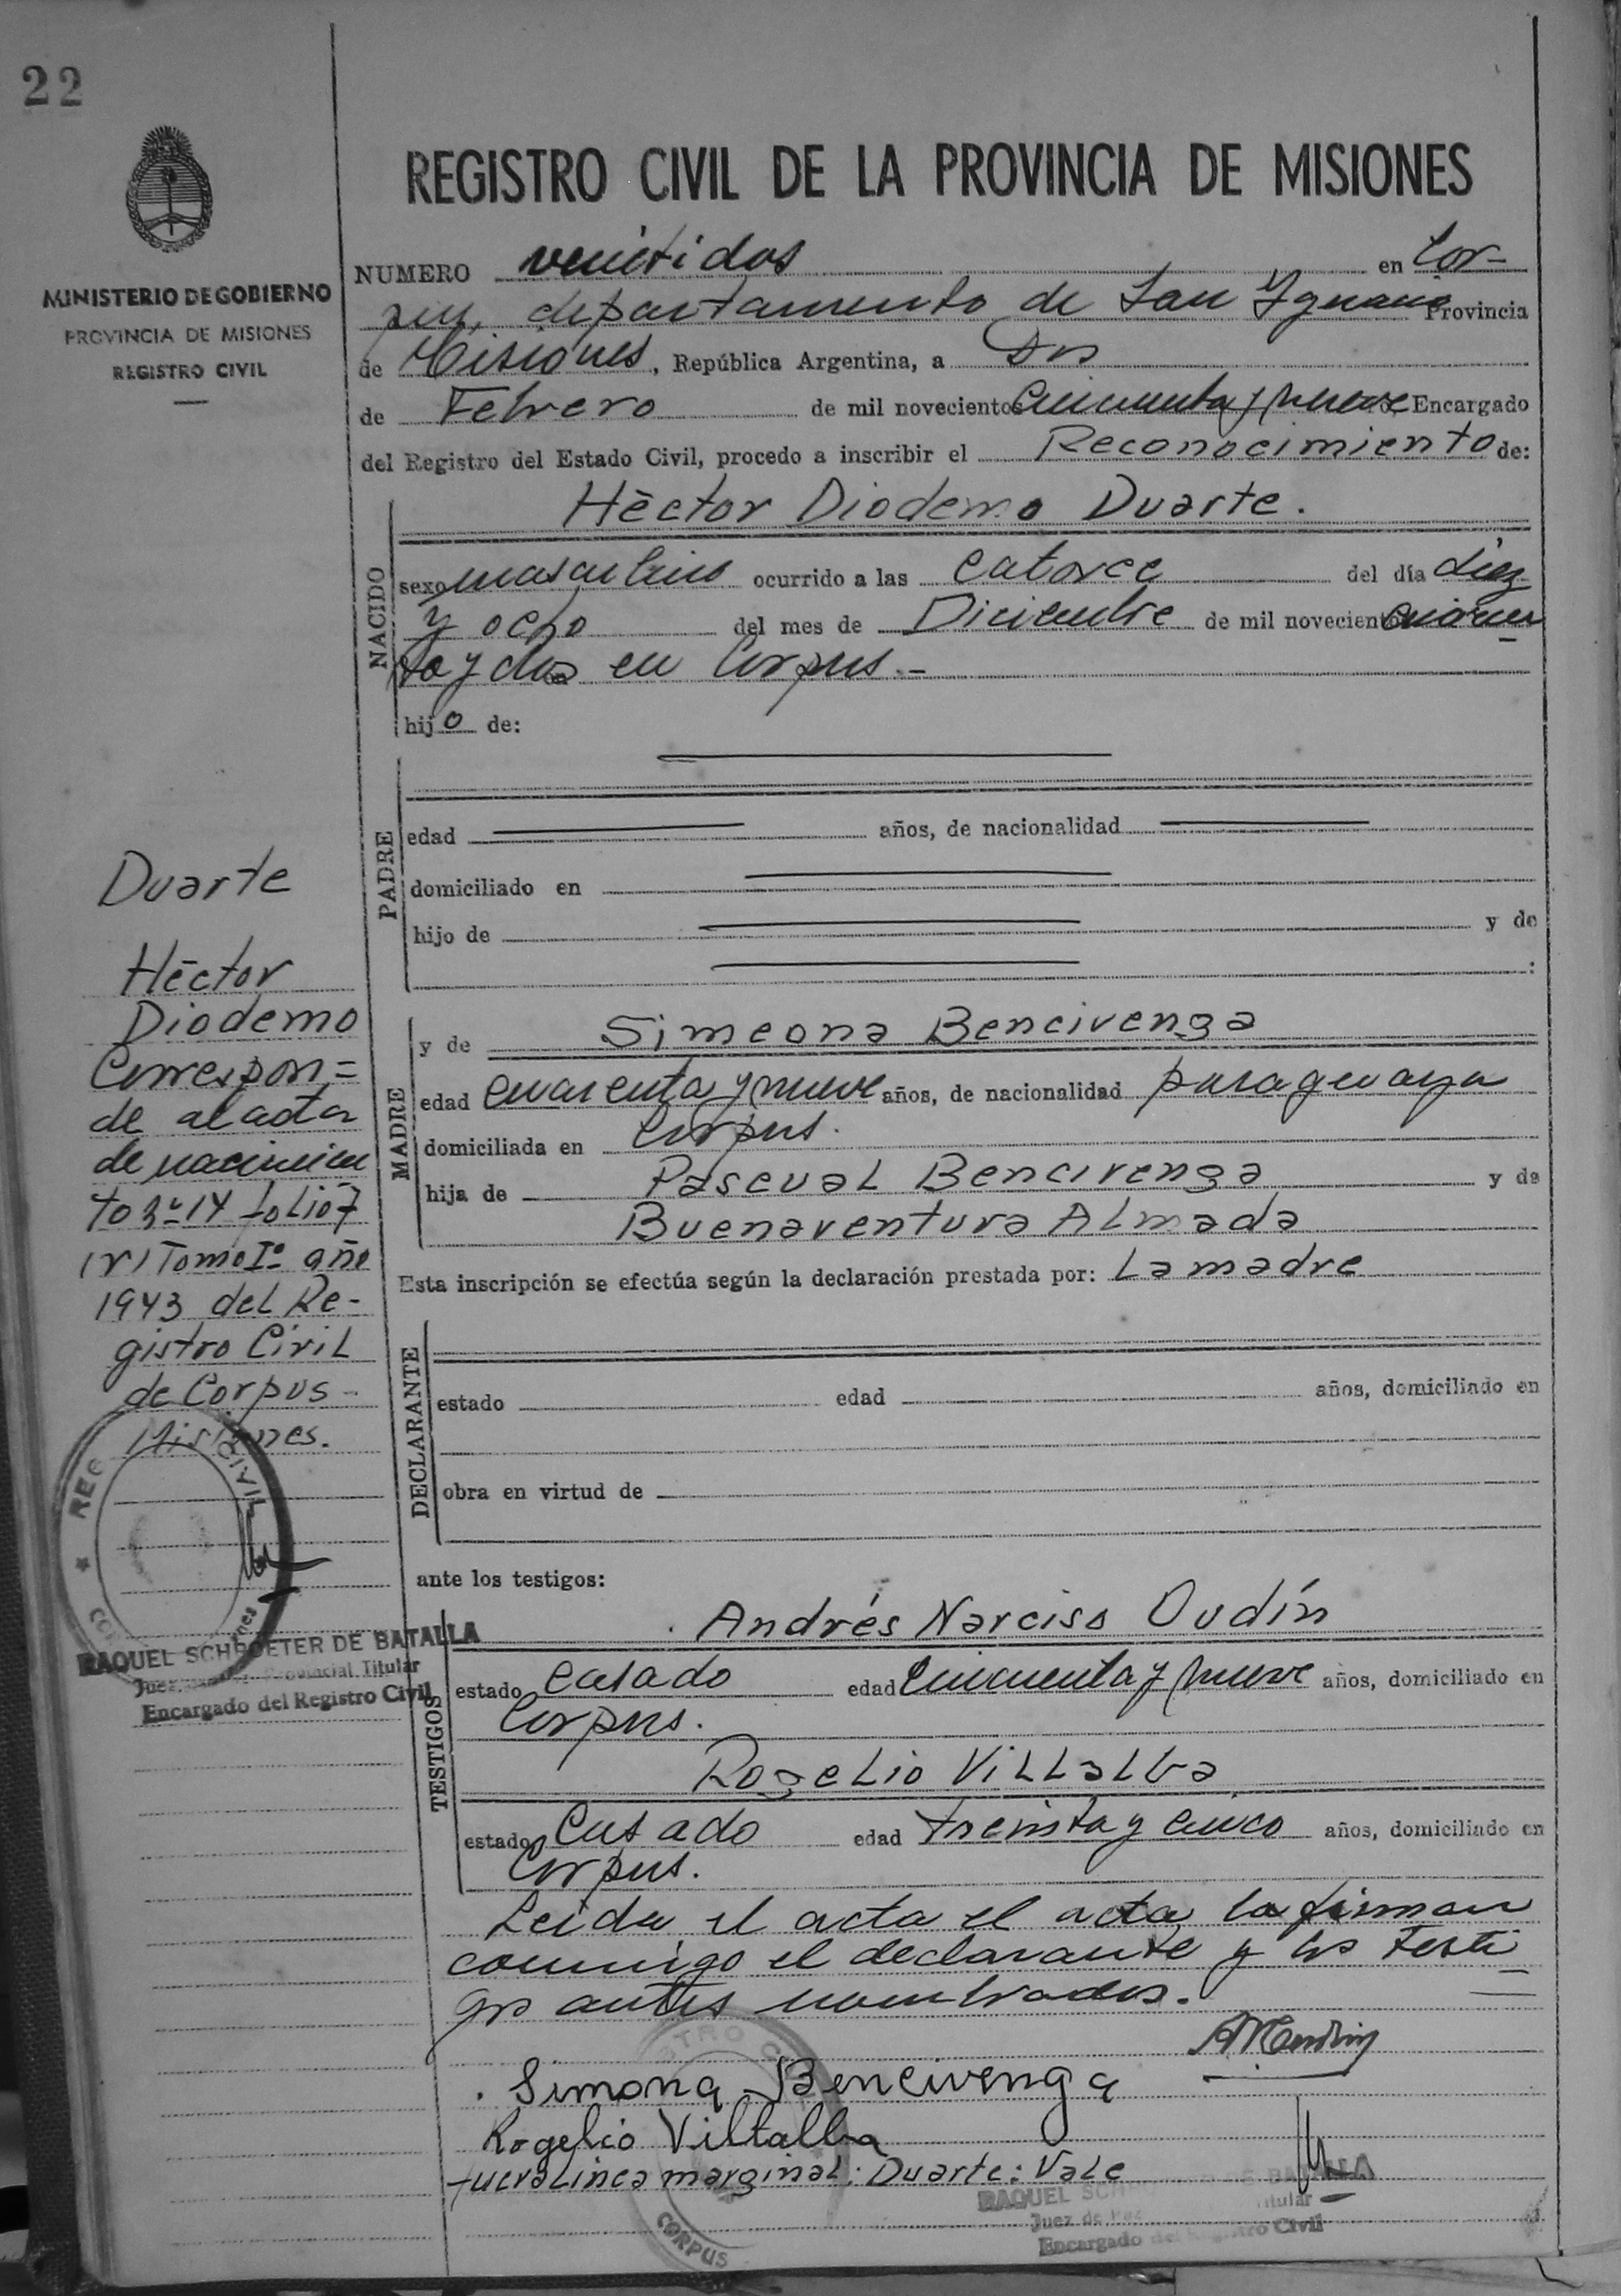 22
MINISTERIO DE GOBIERNO
PROVINCIA DE MISIONES
REGISTRO CIVIL
REGISTRO CIVIL DE LA PROVINCIA DE MISIONES
NUMERO veintidos en Cor-
pus, departamento de San Ygnacio Provincia
de Misiones, República Argentina, a Dos
de Febrero de mil novecientos cincuenta y nueve Encargado
del Registro del Estado Civil, procedo a inscribir el Reconocimiento de:
NACIDO
Héctor Diodemo Duarte.
sexo masculino ocurrido a las catorce del día diez
y ocho del mes de Diciembre de mil novecientos cuaren
ta y dos en Corpus.-
hijo de:
PADRE
edad años, de nacionalidad
domiciliado en
hijo de y de
:
MADRE
y de Simeona Bencivenga
edad cuarenta y nueve años, de nacionalidad paraguaya
domiciliada en Corpus.
hija de Pascual Bencivenga y de
Buenaventura Almada
Esta inscripción se efectúa según la declaración prestada por: La madre
DECLARANTE
estado edad años, domiciliado en
obra en virtud de
ante los testigos:
TESTIGOS
Andrés Narciso Oudín
estado casado edad cincuenta y nueve años, domiciliado en
Corpus.
Rogelio Villalba
estado Casado edad treinta y cinco años, domiciliado en
Corpus.
Leida el acta el acta, la firman
conmigo el declarante y los testi
gos antes nombrados.
Simona Bencivenga
Rogelio Villalba
fuera linea marginal: Duarte: Vale
RAQUEL BATALLA
Juez de Paz Titular
Encargado del Registro Civil
CORPUS
Duarte
Héctor
Diodemo
Correspon=
de al acta
de nacimien
to nº 14 folio 7
(v) Tomo Iº año
1943 del Re-
gistro Civil
de Corpus-
Misiones.
REG CIVIL
RAQUEL SCHROETER DE BATALLA
Juez Provincial Titular
Encargado del Registro Civil